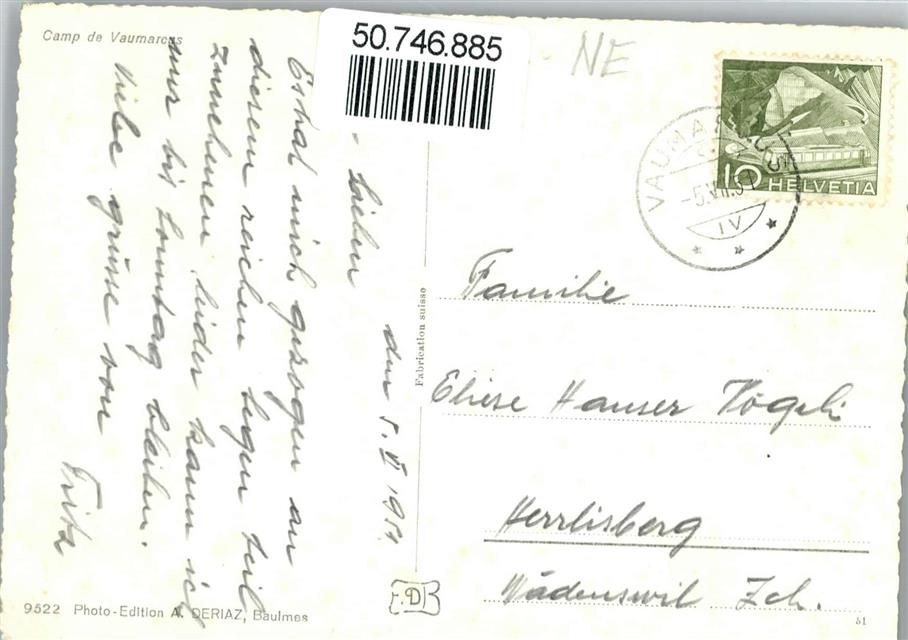 Camp de Vaumarcus
50.746.885
NE
10 HELVETIA
VAUMARCUS
-5.VII.5
IV
den 5. VI 1951
lieben
Es hat mich gezogen an
diesen reichen
zunehmen leider kann ich
nur bis Sonntag bleiben.
Viele grüsse von
Fritz
Fabrication suisse
Familie
Eliese Hauser Vögeli
Herrlisberg
Wädenswil Zch.
D
9522 Photo-Edition A. DERIAZ, Baulmes
51